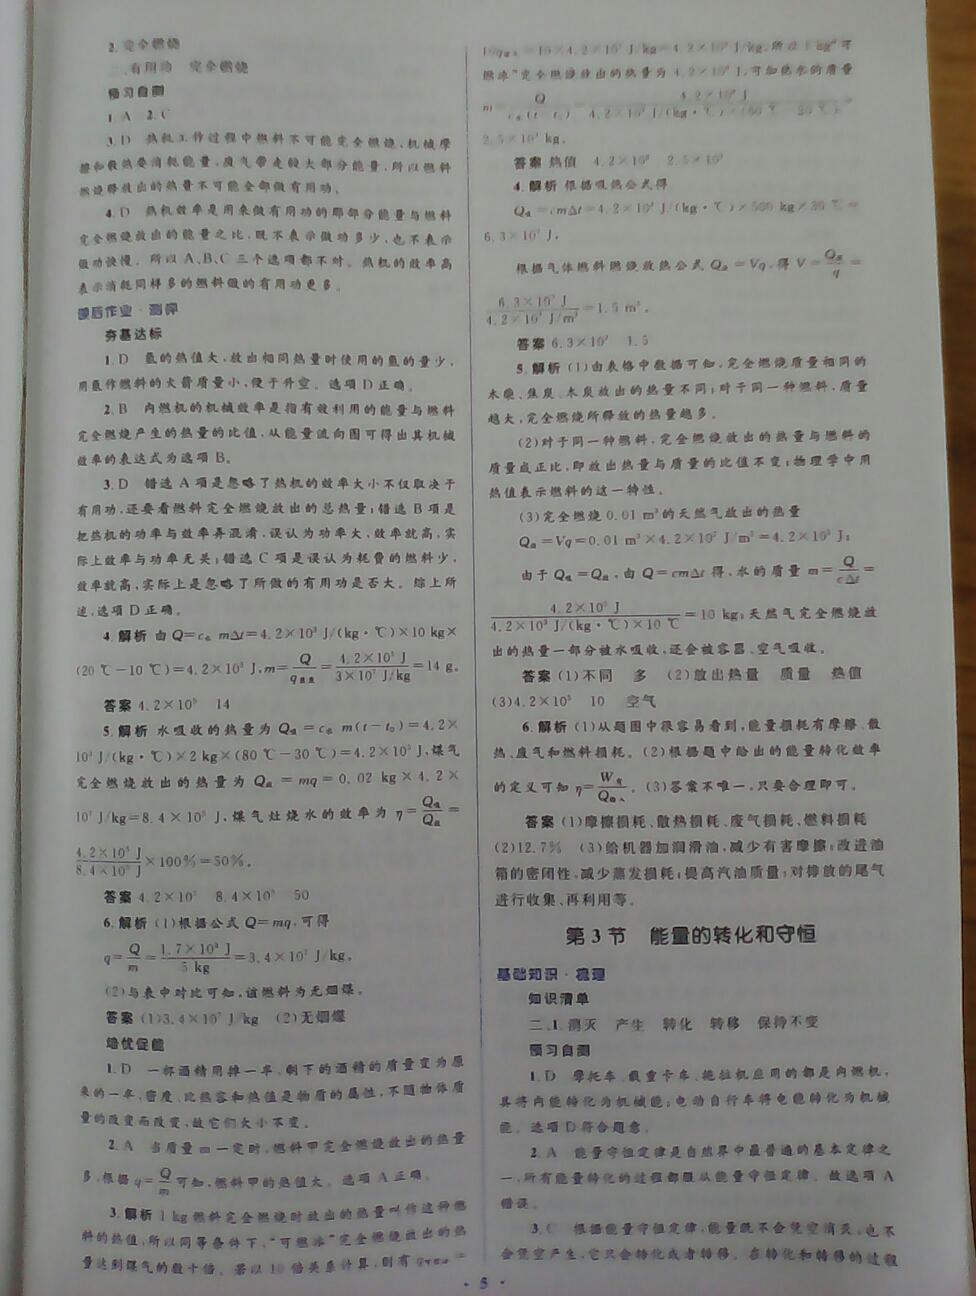 2.完全燃烧
二、有用功　完全燃烧
预习自测
1.A　2.C
3.D　热机工作过程中燃料不可能完全燃烧,机械摩
擦和散热要消耗能量,废气带走较大部分能量,所以燃料
燃烧释放出的热量不可能全部做有用功。
4.D　热机效率是用来做有用功的那部分能量与燃料
完全燃烧放出的能量之比,既不表示做功多少,也不表示
做功快慢。所以A、B、C三个选项都不对。热机的效率高
表示消耗同样多的燃料做的有用功更多。
课后作业·测评
夯基达标
1.D　氢的热值大,放出相同热量时使用的氢的量少,
用氢作燃料的火箭质量小,便于升空。选项D正确。
2.B　内燃机的机械效率是指有效利用的能量与燃料
完全燃烧产生的热量的比值,从能量流向图可得出其机械
效率的表达式为选项B。
3.D　错选A项是忽略了热机的效率大小不仅取决于
有用功,还要看燃料完全燃烧放出的总热量;错选B项是
把热机的功率与效率弄混淆,误认为功率大,效率就高,实
际上效率与功率无关;错选C项是误认为耗费的燃料少,
效率就高,实际上是忽略了所做的有用功是否大。综上所
述,选项D正确。
4.解析 由Q=c水mΔt=4.2×10³ J/(kg·℃)×10 kg×
(20 ℃-10 ℃)=4.2×10⁵ J,m=Q/q=4.2×10⁵ J/3×10⁷ J/kg=14 g。
答案 4.2×10⁵　14
5.解析 水吸收的热量为Q吸=c水m(t-t₀)=4.2×
10³ J/(kg·℃)×2 kg×(80 ℃-30 ℃)=4.2×10⁵ J,煤气
完全燃烧放出的热量为Q放=mq=0.02 kg×4.2×
10⁷ J/kg=8.4×10⁵ J,煤气灶烧水的效率为η=Q吸/Q放=
4.2×10⁵ J/8.4×10⁵ J×100%=50%。
答案 4.2×10⁵　8.4×10⁵　50
6.解析 (1)根据公式Q=mq,可得
q=Q/m=1.7×10⁸ J/5 kg=3.4×10⁷ J/kg。
(2)与表中对比可知,该燃料为无烟煤。
答案 (1)3.4×10⁷ J/kg　(2)无烟煤
培优促能
1.D　一杯酒精用掉一半,剩下的酒精的质量变为原
来的一半,密度、比热容和热值是物质的属性,不随物体质
量的改变而改变,故它们大小不变。
2.A　当质量m一定时,燃料甲完全燃烧放出的热量
多,根据q=Q/m可知,燃料甲的热值大。选项A正确。
3.解析 1 kg燃料完全燃烧时放出的热量叫作这种燃
料的热值,所以同等条件下,“可燃冰”完全燃烧放出的热
量达到煤气的数十倍。若以10倍关系计算,则有q可燃冰=
10q煤气=10×4.2×10⁷ J/kg=4.2×10⁸ J/kg,所以1 kg“可
燃冰”完全燃烧放出的热量为4.2×10⁸ J,可加热水的质量
m=Q/c水(t-t₀)=4.2×10⁸ J/4.2×10³ J/(kg·℃)×(60 ℃-20 ℃)=
2.5×10³ kg。
答案 热值　4.2×10⁸　2.5×10³
4.解析 根据吸热公式得
Q吸=cmΔt=4.2×10³ J/(kg·℃)×500 kg×30 ℃=
6.3×10⁷ J,
根据气体燃料燃烧放热公式Q放=Vq,得V=Q放/q=
6.3×10⁷ J/4.2×10⁷ J/m³=1.5 m³。
答案 6.3×10⁷　1.5
5.解析 (1)由表格中数据可知,完全燃烧质量相同的
木柴、焦炭、木炭放出的热量不同;对于同一种燃料,质量
越大,完全燃烧所释放的热量越多。
(2)对于同一种燃料,完全燃烧放出的热量与燃料的
质量成正比,即放出热量与质量的比值不变;物理学中用
热值表示燃料的这一特性。
(3)完全燃烧0.01 m³的天然气放出的热量
Q放=Vq=0.01 m³×4.2×10⁷ J/m³=4.2×10⁵ J;
由于Q吸=Q放,由Q=cmΔt得,水的质量m=Q/cΔt=
4.2×10⁵ J/4.2×10³ J/(kg·℃)×10 ℃=10 kg;天然气完全燃烧放
出的热量一部分被水吸收,还会被容器、空气吸收。
答案 (1)不同　多　(2)放出热量　质量　热值
(3)4.2×10⁵　10　空气
6.解析 (1)从题图中很容易看到,能量损耗有摩擦、散
热、废气和燃料损耗。(2)根据题中给出的能量转化效率
的定义可知η=W有/Q输入。(3)答案不唯一,只要合理即可。
答案 (1)摩擦损耗、散热损耗、废气损耗、燃料损耗
(2)12.7%　(3)给机器加润滑油,减少有害摩擦;改进油
箱的密闭性,减少蒸发损耗;提高汽油质量;对排放的尾气
进行收集、再利用等。
第3节　能量的转化和守恒
基础知识·梳理
知识清单
二、1.消灭　产生　转化　转移　保持不变
预习自测
1.D　摩托车、载重卡车、拖拉机应用的都是内燃机,
其将内能转化为机械能;电动自行车将电能转化为机械
能。选项D符合题意。
2.A　能量守恒定律是自然界中最普遍的基本定律之
一,所有能量转化的过程都服从能量守恒定律。故选项A
错误。
3.C　根据能量守恒定律,能量既不会凭空消灭,也不
会凭空产生,它只会转化或者转移。在转化和转移的过程
·5·